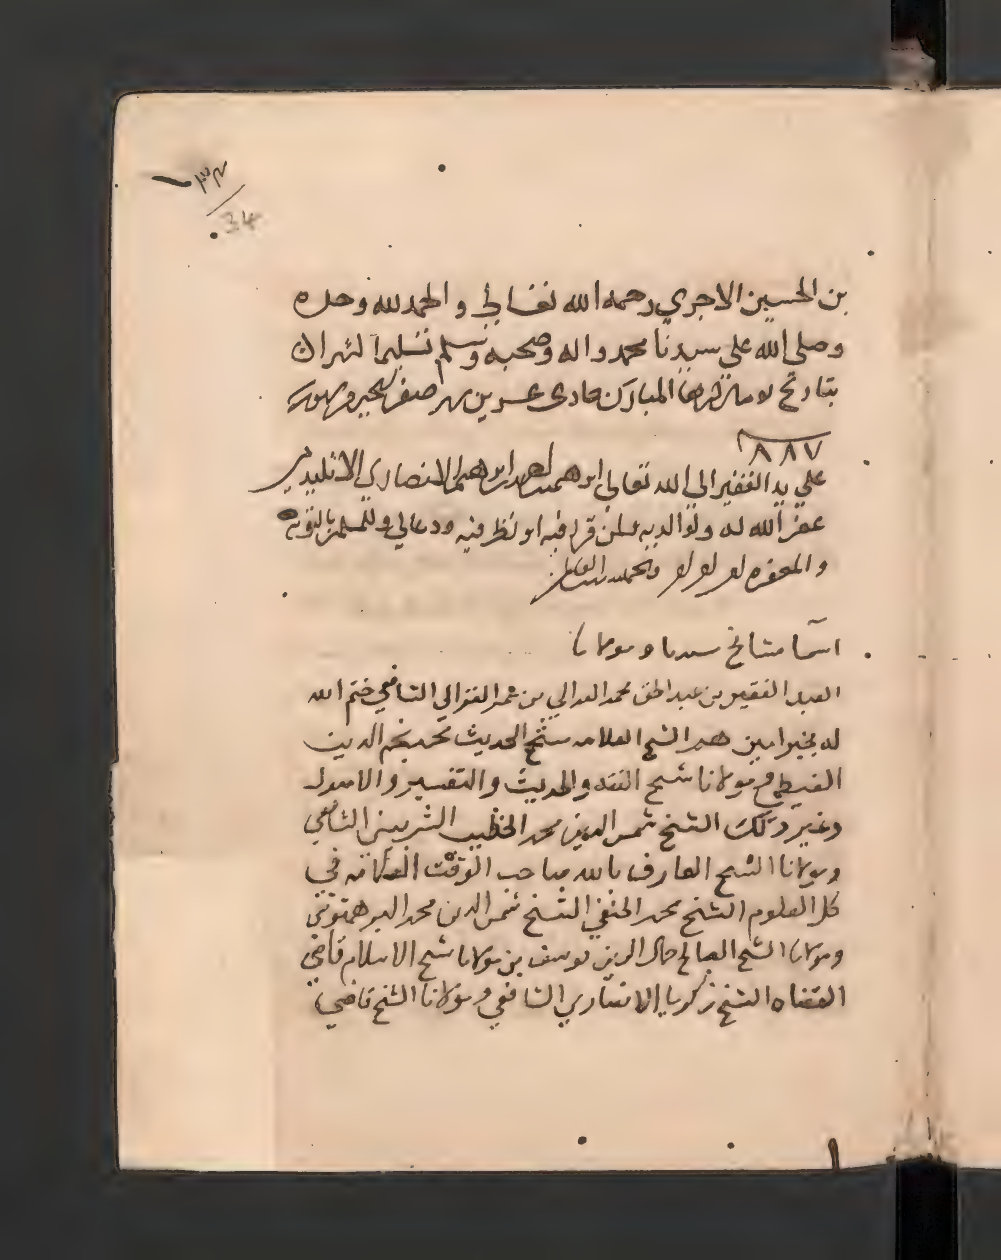 ٣٤
34
بن الحسين الاجري رحمه الله تعالى والحمد لله وحده
وصلى الله على سيدنا محمد واله وصحبه وسلم تسليما
بتاريخ المبارك حادى عشرين صفر الخير
٨٨٧
على يد الفقير الى الله تعالى ابرهيم الانصاري
غفر الله له ولوالديه ولمن قرا فيه او نظر فيه ودعا لي وللمسلمين بالتوبة
والمغفره
اسما مشائخ سيدنا ومولانا
العبد الفقير بن عبد الحق محمد بن عمر الغزالي الشافعي ختم الله
له بخير امين هم الشيخ العلامه شيخ الحديث نجم الدين
الغيطي ومولانا شيخ الفقه والحديث والتفسير والاصول
وغير ذلك الشيخ شمس الدين محمد الخطيب الشربيني الشافعي
ومولانا الشيخ العارف بالله صاحب الوقت العلامه في
كل العلوم الشيخ محمد الحنفي الشيخ شمس الدين محمد البرهمتوشي
ومولانا الشيخ الصالح جمال الدين يوسف بن مولانا شيخ الاسلام قاضي
القضاه الشيخ زكريا الانصاري الشافعي ومولانا الشيخ قاضي